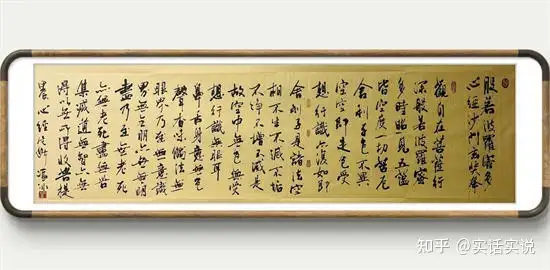 般若波羅蜜多
心經沙門玄奘奉
觀自在菩薩行
深般若波羅蜜
多時照見五蘊
皆空度一切苦厄
舍利子色不異
空空即是色受
想行識亦復如
舍利子是諸法空
相不生不滅不垢
不淨不增不減是
故空中無色無受
想行識無眼耳
鼻舌身意無色
聲香味觸法無
眼界乃至無意識
界無無明亦無無明
盡乃至無老死
亦無老死盡無苦
集滅道無智亦無
得以無所得故菩提
心經
知乎 @实话实说